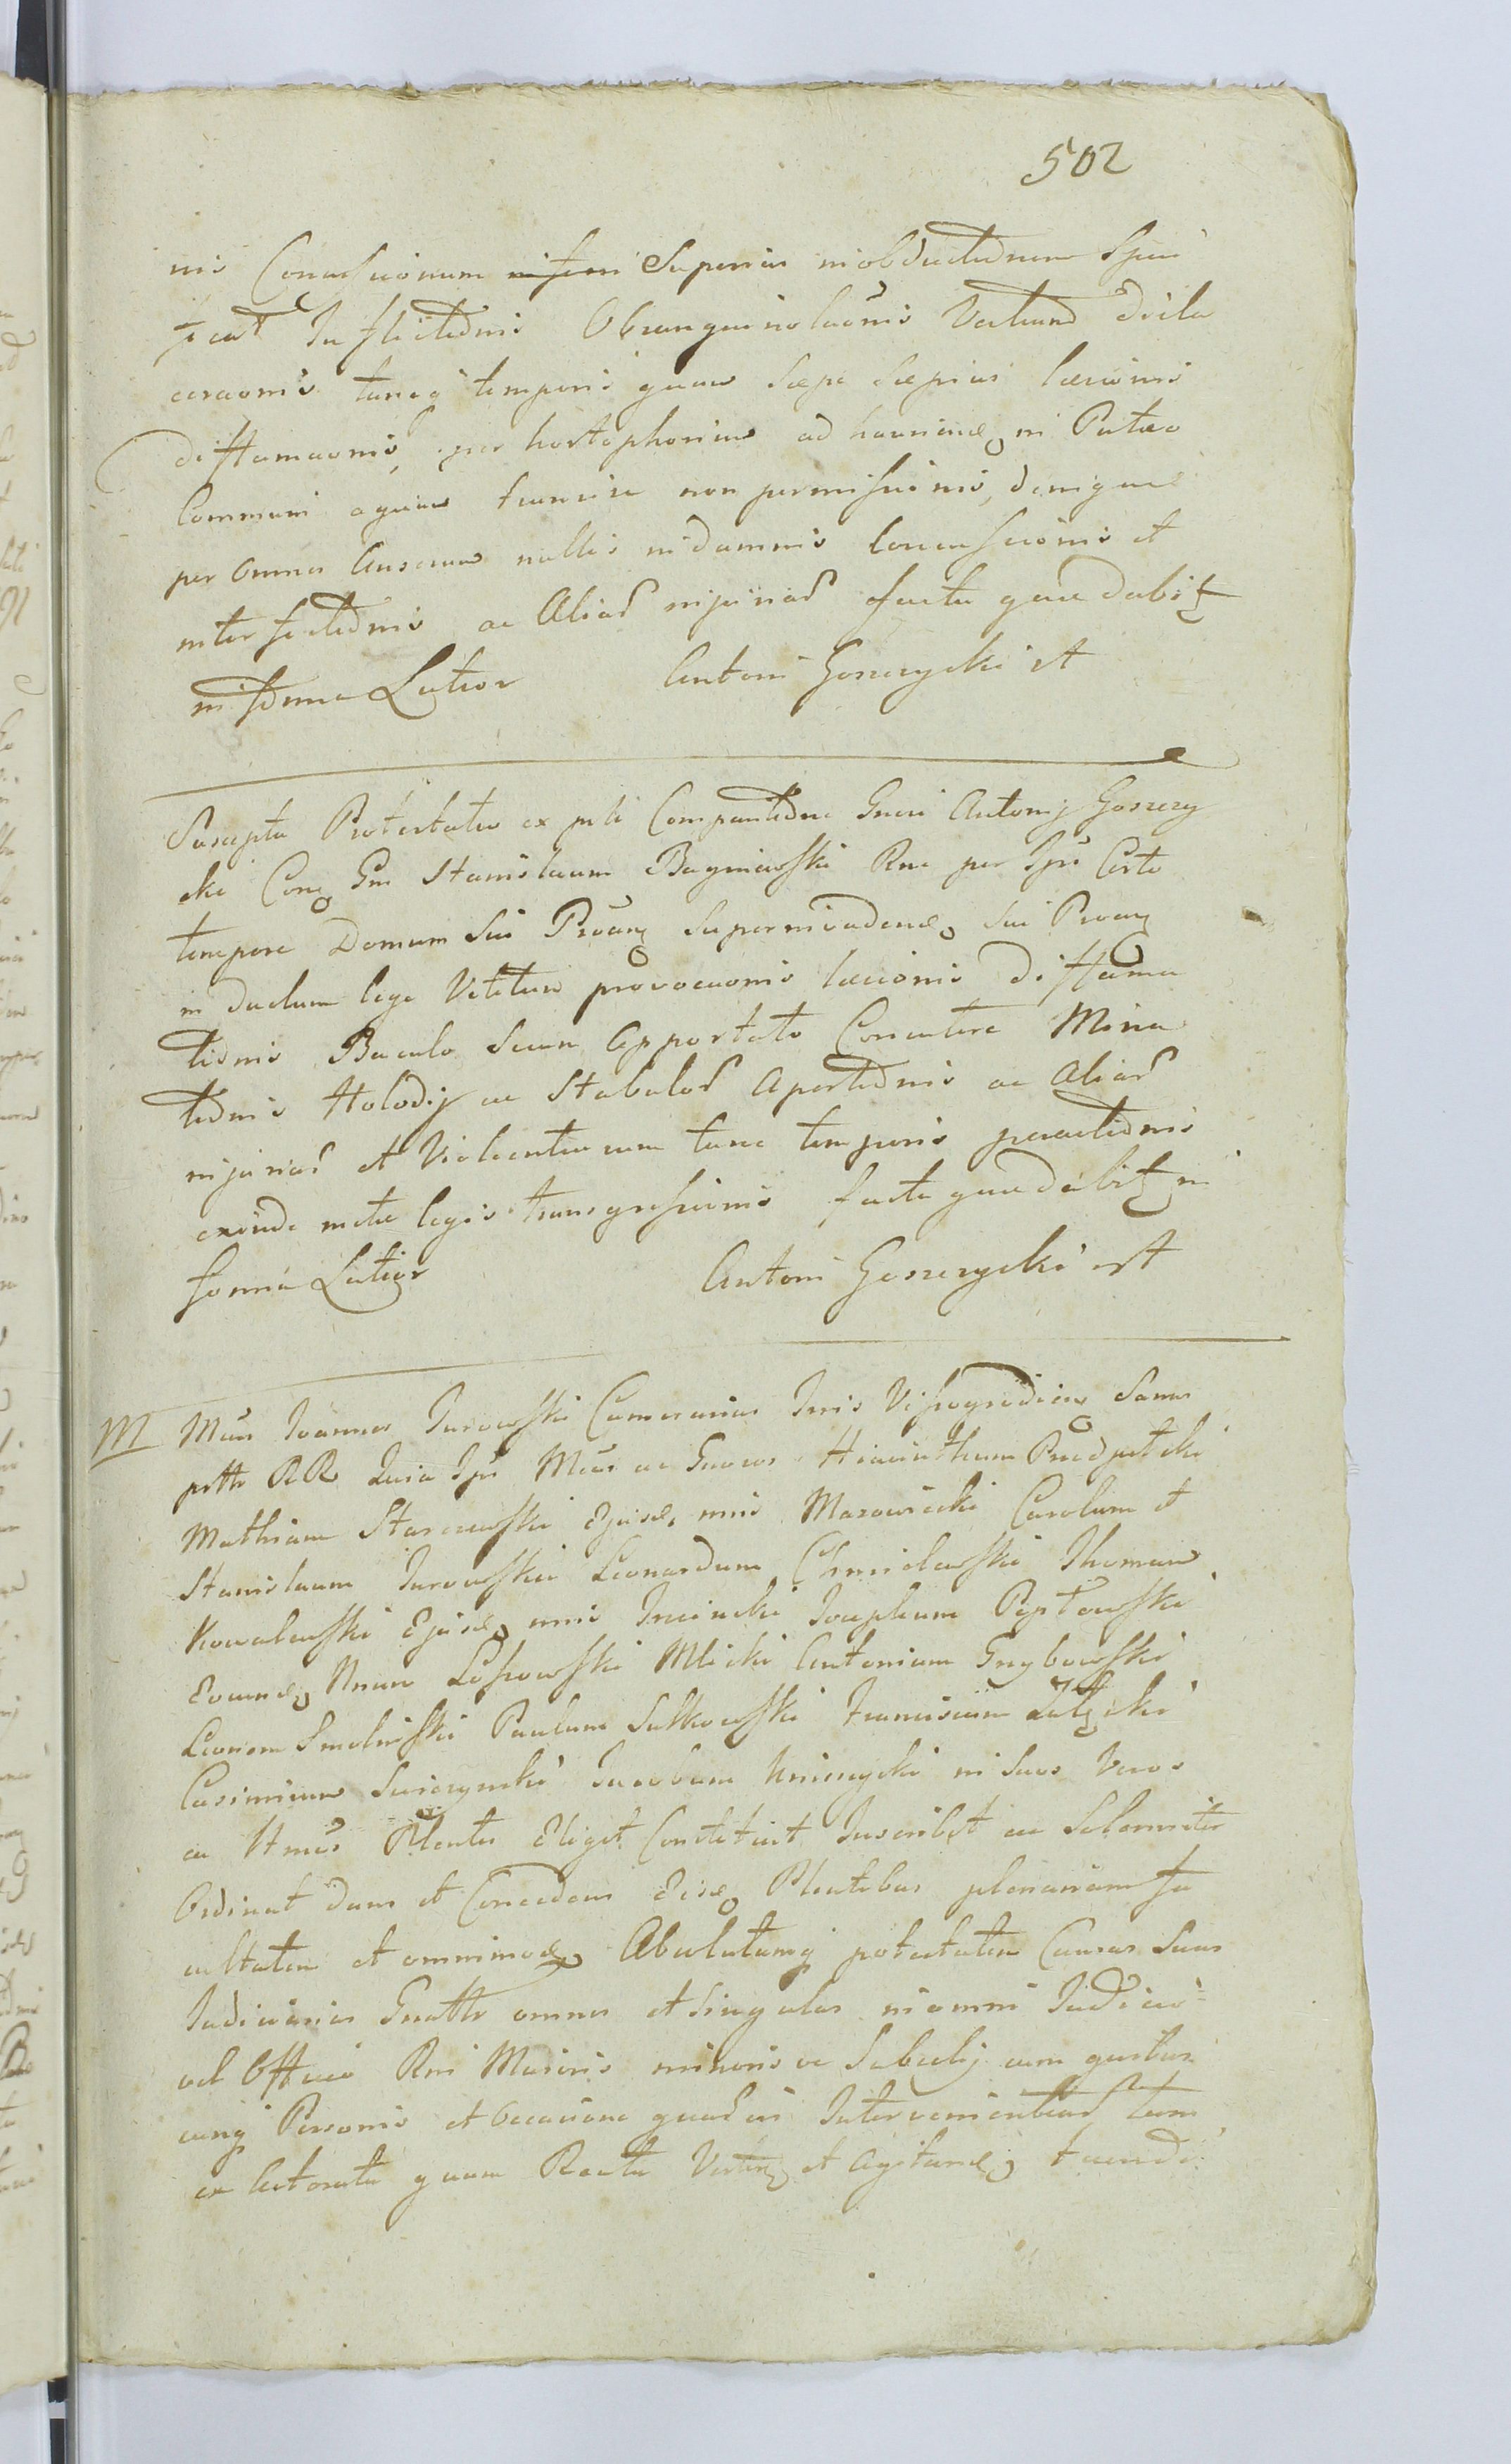 502
nis Concussionum Superius in obductionem
Inflictionis Obsanguinolaonis Vestium Dila
ceraonis tuncq temporis quam saepe saepius laesionis
diffamaonis, per hostophorium ad hauriend in Puteo
Communi aquam transire non permissionis, denique
per omnes Anserum nullis in damnis concussionis et
interfectionis ac Aliar injuriar facta quae dabit
in forma Latior Antoni Goszczycki mp
Suscepta Protestatio ex parte Comparitione Gnrsi Antonij Goszczy
cki Conq Gm Stanislaum Bagniewski Rne per Ipm Certo
tempore Domum Sui Proan Superinvadend, Sui Proan
in duelum lege Vetitum provocaonis laesionis diffama
tionis Baculo secum Apportato Concutere Mina
tionis Holodij ac Stabulor Apertionis ac Aliar
injuriar et Violentiarum tunc temporis peractionis
exinde metae legis transgressionis facta quae dabit in
forma Latior Antoni Goszczycki mp
M Mcus Joannes Jurowski Camerarius Tris Vissogrodien Sanus
prtte RR Quia Ipse Mcus ac Gnrosos Hiacinthum Przedpelski
Mathiam Starczewski Ejusd, mni Mazowiecki Carolum et
Stanislaum Jurowskie Leonardum Chmielewski Thomam
Kowalewski Ejusd, mni Trcinski Josephum Peptowski
Eorund, Nnum Lossowski Mlicki Antonium Grzybowski
Leonem Smolinski Paulum Sutkowski Franciscum
Casimirum Swiezynski Jacobum Kniczycki in suos Veros
ac Ltmos Plentes Eligit Constituit Inscribit ac Solemniter
Ordinat dans et Concedens Eisd, Plentibus plenariam fa
cultatem et omnimod, Absolutamq potestatem Causas Suas
Judiciarias Gnatter omnes et singulas in omni Judicio
vel Officio Rni Maioris minoris ve Subselij cum quibus
cunq Personis et occasione quar eis Intervenientiar tam
ex Actoratu quam Reatu Verten et Agitand, tuendi